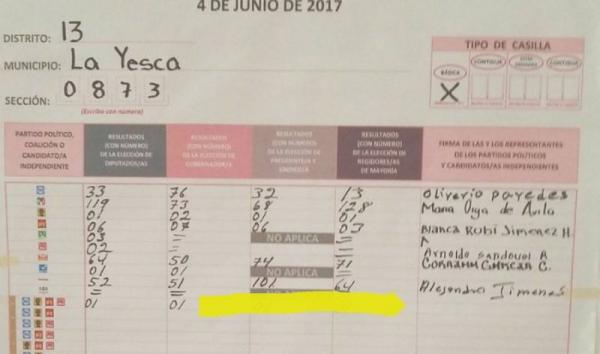 4 DE JUNIO DE 2017
DISTRITO: 13
MUNICIPIO: La Yesca
SECCIÓN: 0873
(Escriba con número)
TIPO DE CASILLA
BÁSICA CONTIGUA CONTIGUA
X
PARTIDO POLÍTICO, COALICIÓN O CANDIDATO/A INDEPENDIENTE
RESULTADOS (CON NÚMERO) DE LA ELECCIÓN DE DIPUTADOS/AS
RESULTADOS (CON NÚMERO) DE LA ELECCIÓN DE GOBERNADOR/A
RESULTADOS (CON NÚMERO) DE LA ELECCIÓN DE PRESIDENTE/A Y SINDICO/A
RESULTADOS (CON NÚMERO) DE LA ELECCIÓN DE REGIDORES/AS DE MAYORÍA
FIRMA DE LAS Y LOS REPRESENTANTES DE LOS PARTIDOS POLÍTICOS Y CANDIDATOS/AS INDEPENDIENTES
33 76 32 13 Oliverio paredes
119 73 68 128 Maria Olga de Avila
01 02 01 01
06 07 06 03 Blanca Rubi Jimenez H.
03 = NO APLICA =
02 = =
64 50 74 71 Arnoldo Sandoval A
01 01 NO APLICA =
52 51 101 64 Alejandra Jimenes
= = =
01 01